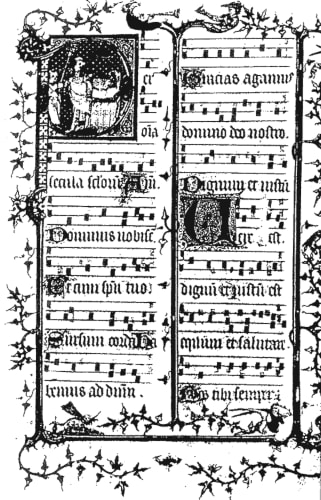 er
om̄a
secula sclorū Am̄.
Dominus vobisc̄
Et cum spū tuo.
Sursum corda Ha
bemus ad dūm.
Gracias agamus
domino deo nostro.
Dignum et iustū
Uere est.
dignū et iustū est
equum et salutare
Nos tibi semper